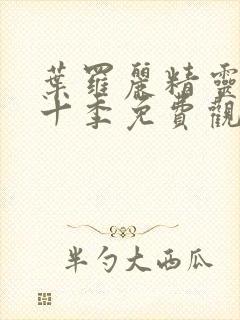 葉羅麗精靈
十季免費觀
半勺大西瓜